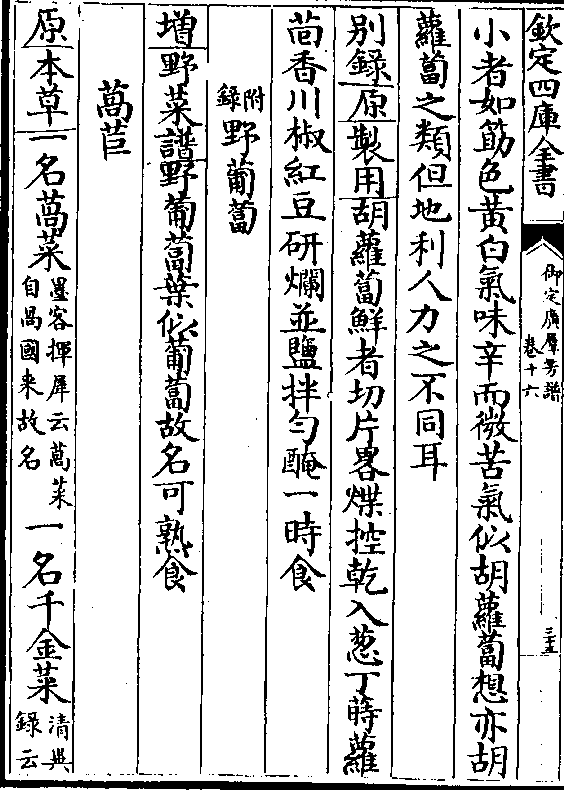 欽定四庫全書
御定廣羣芳譜
卷十六
三十五
小者如筯色黃白氣味辛而微苦氣似胡蘿蔔想亦胡
蘿蔔之類但地利人力之不同耳
别錄原製用胡蘿蔔鮮者切片畧煠控乾入葱丁蒔蘿
茴香川椒紅豆研爛並鹽拌勻醃一時食
附錄野葡蔔
增野菜譜野葡蔔葉似葡蔔故名可熟食
萵苣
原本草一名萵菜墨客揮犀云萵菜自咼國来故名一名千金菜清異錄云